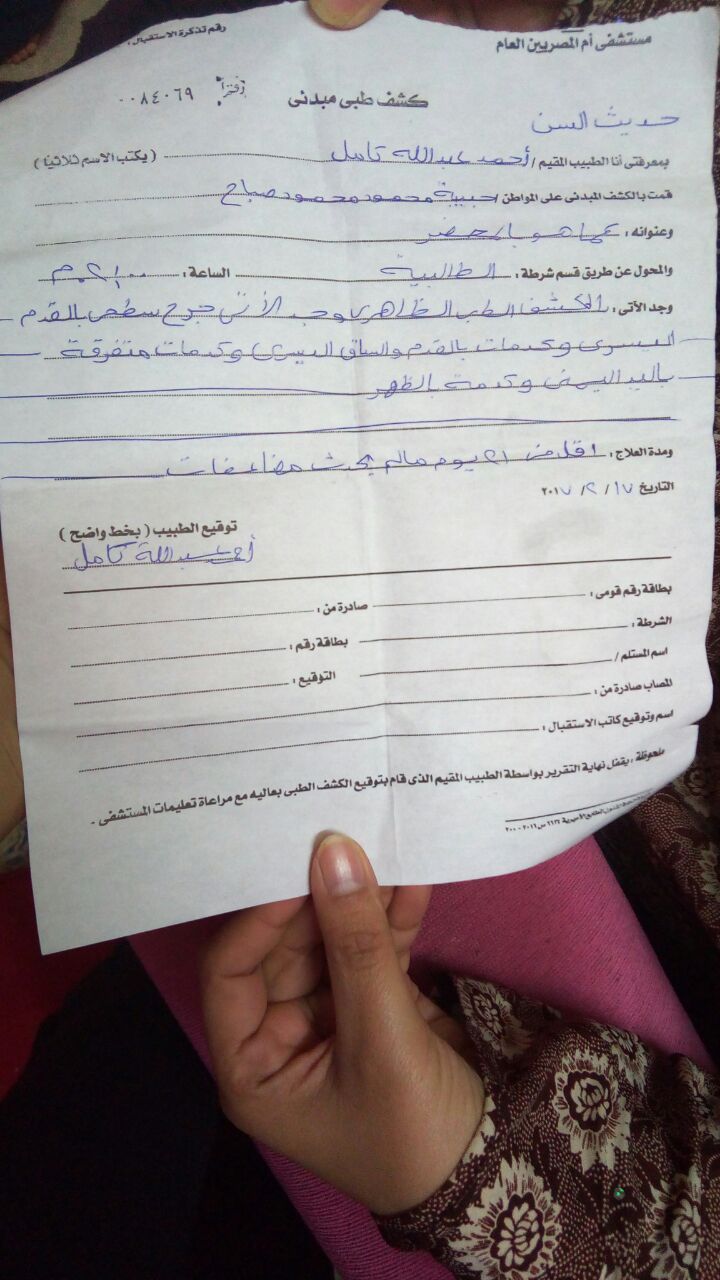 مستشفى أم المصريين العام
رقم تذكرة الاستقبال :
كشف طبى مبدئى
دفتر ٠٠٨٤٠٦٩
حديث السن
بمعرفتى أنا الطبيب المقيم / أحمد عبدالله كامل ( يكتب الاسم ثلاثيا )
قمت بالكشف المبدئى على المواطن / حبيبة محمود محمود صباح
وعنوانه : كما هو بالمحضر
والمحول عن طريق قسم شرطة : الطالبية الساعة :
وجد الأتى : بالكشف الطبى الظاهرى وجد الأتى جرح سطحى بالقدم
اليسرى وكدمات بالقدم والساق اليسرى وكدمات متفرقة
باليد اليمنى وكدمة بالظهر
ومدة العلاج : اقل من ٢١ يوم مالم يحدث مضاعفات
التاريخ ١٧ / ٢ / ٢٠١٧
توقيع الطبيب ( بخط واضح )
أحمد عبدالله كامل
بطاقة رقم قومى : صادرة من :
الشرطة : بطاقة رقم :
اسم المستلم / التوقيع :
المصاب صادرة من :
اسم وتوقيع كاتب الاستقبال :
ملحوظة : يقفل نهاية التقرير بواسطة الطبيب المقيم الذى قام بتوقيع الكشف الطبى بعاليه مع مراعاة تعليمات المستشفى .